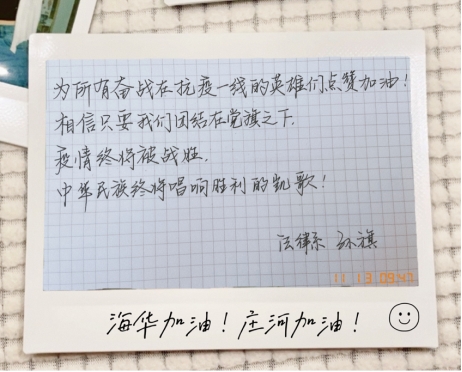 为所有奋战在抗疫一线的英雄们点赞加油！
相信只要我们团结在党旗之下.
疫情终将被战胜.
中华民族终将唱响胜利的凯歌！
法律系 孙旗
11 13 09:47
海华加油！庄河加油！